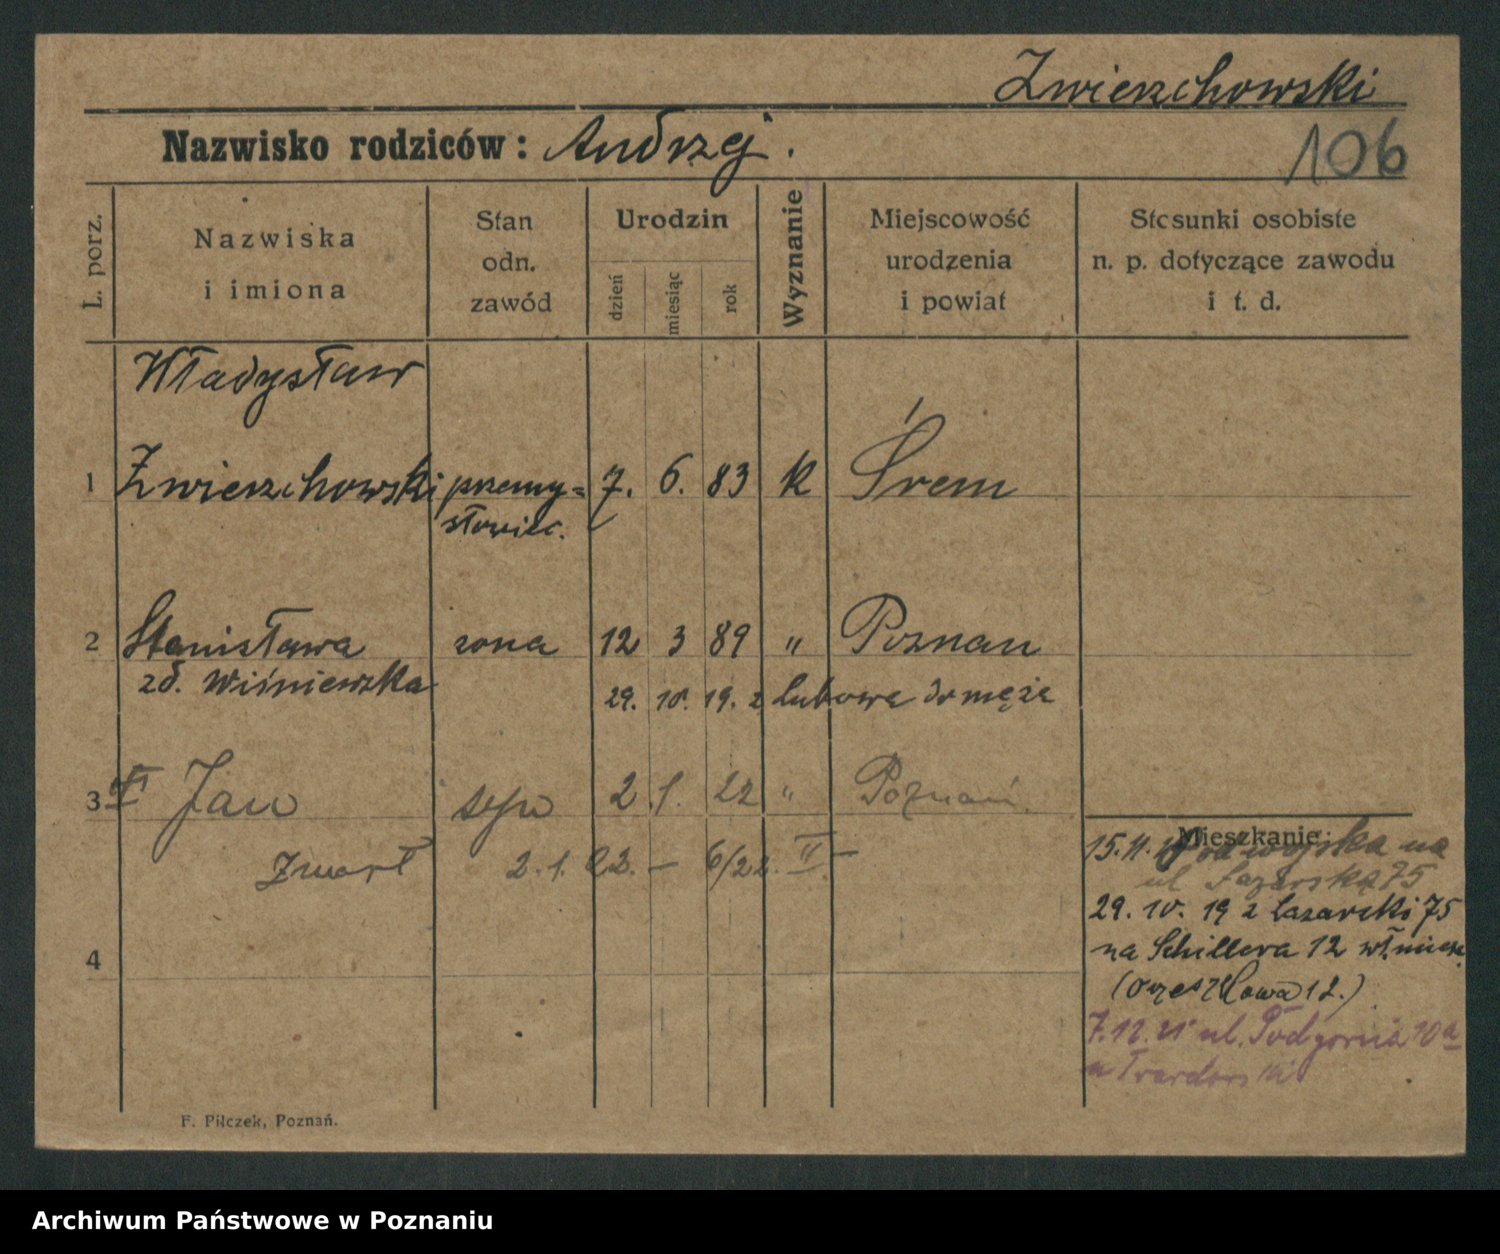 Zwierzchowski
Nazwisko rodziców: Andrzej.
106
L. porz.
Nazwiska
i imiona
Stan
odn.
zawód
Urodzin
dzień
miesiąc
rok
Wyznanie
Miejscowość
urodzenia
i powiat
Stosunki osobiste
n. p. dotyczące zawodu
i t. d.
Władysław
1 Zwierzchowski przemy= 7. 6. 83 k Śrem
słowiec.
2 Stanisława zona 12 3 89 " Poznan
zd. Wiśniewska
29. 10. 19. z Lubowa do męża
3 Jan syn 2 1. 22 " Poznań
Zmarł 2. 1. 22. — 6/22. II —
4
Mieszkanie:
15. 11. na
ul Łazarską 75
29. 10. 19 z Łazarski 75
na Schillera 12 wł. miesz.
(Orzeszkowa 12.)
7. 12. 21 ul. Podgórna 10a
u
F. Pilczek, Poznań.
Archiwum Państwowe w Poznaniu